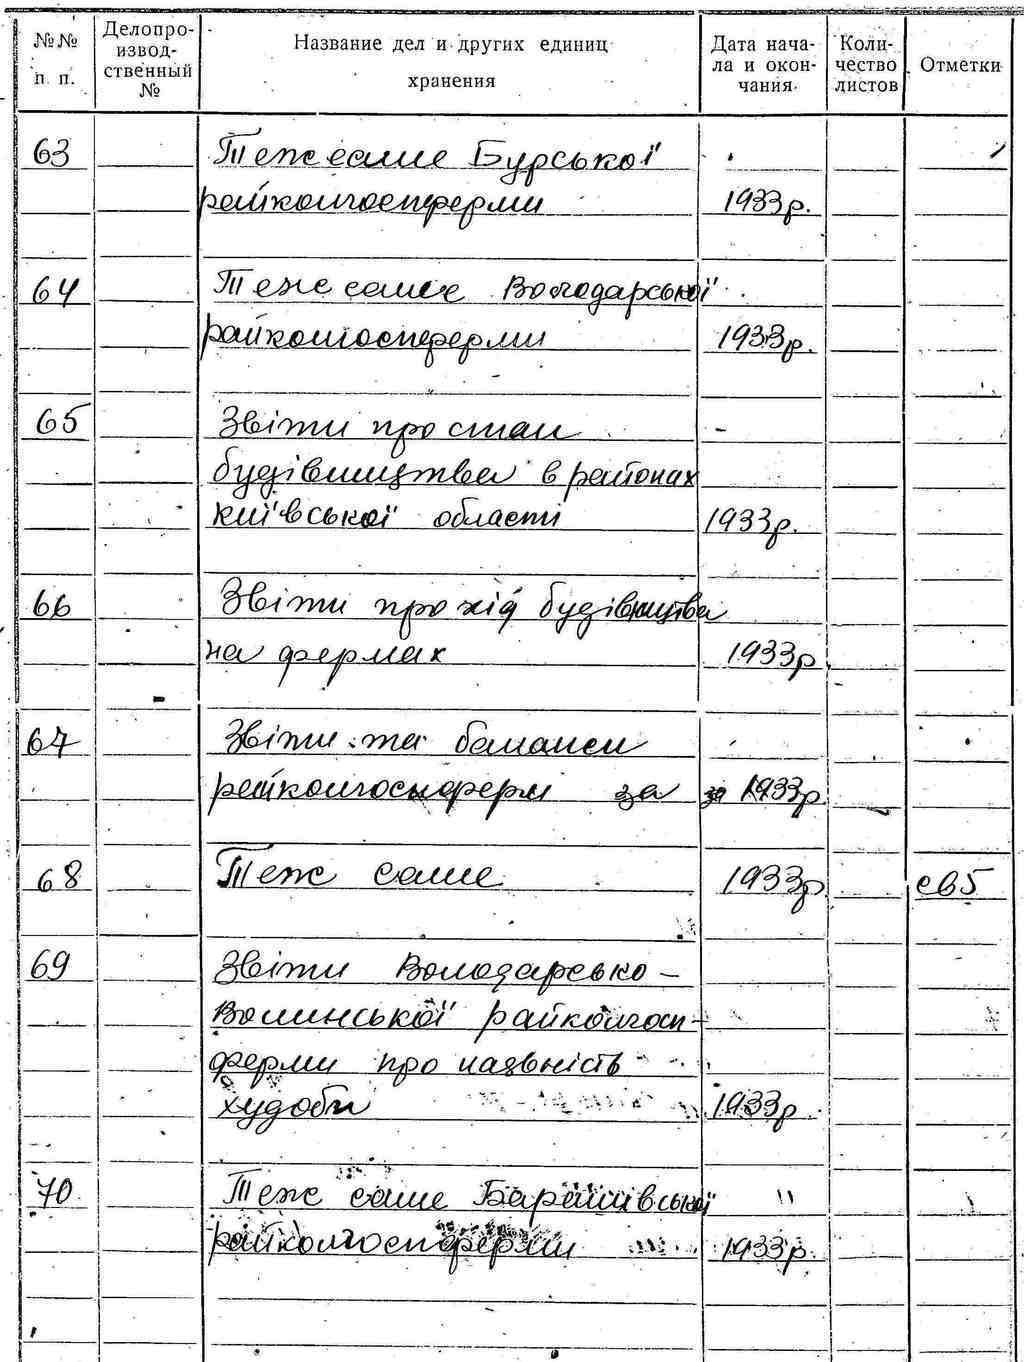 №№ п. п.
Делопро-
извод-
ственный
№
Название дел и других единиц
хранения
Дата нача-
ла и окон-
чания
Коли-
чество
листов
Отметки
63 Теж саме Бурської
райколгоспферми 1933р.
64 Теж саме Володарської
райколгоспферми 1933р.
65 Звіти про стан
будівництва в районах
київської області 1933р.
66 Звіти про хід будівництва
на фермах 1933р
67 Звіти та баланси
райколгоспферм за за 1933р.
68 Теж саме 1933р св5
69 Звіти Володарсько-
Волинської райколгосп-
ферми про наявність
худоби 1933р
70 Теж саме Барашівської "
райколгоспферми 1933р.